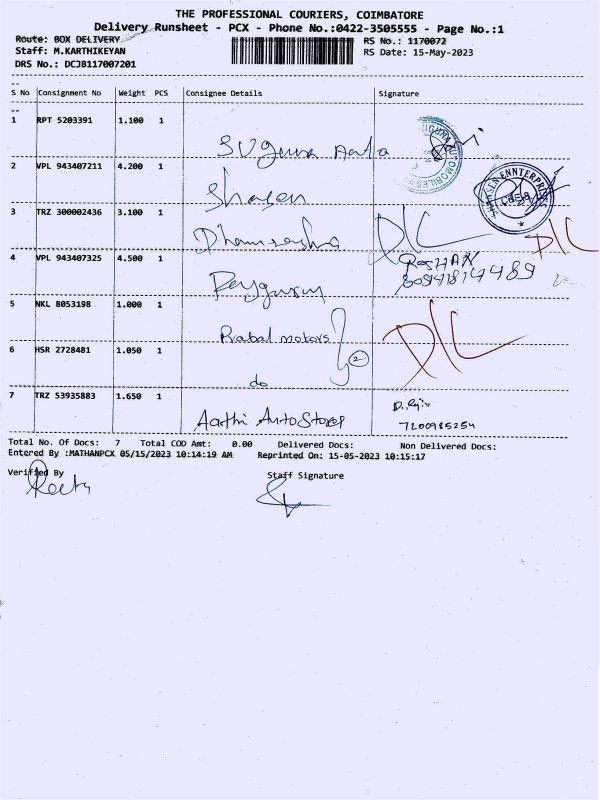 THE PROFESSIONAL COURIERS, COIMBATORE
Delivery Runsheet - PCX - Phone No.:0422-3505555 - Page No.:1
Route: BOX DELIVERY
RS No.: 1170072
Staff: M.KARTHIKEYAN
RS Date: 15-May-2023
DRS No.: DCJB117007201
S No Consignment No Weight PCS Consignee Details Signature
1 RPT 5203391 1.100 1
Suguna Auto
2 VPL 943407211 4.200 1
Shasen
3 TRZ 300002436 3.100 1
D/C D/C
4 VPL 943407325 4.500 1
ROSHAN
5 NKL 8053198 1.000 1
Prabal motors
D/C
6 HSR 2728481 1.050 1
2
do
7 TRZ 53935883 1.650 1
Aarthi Auto Stores
7200985254
Total No. Of Docs: 7 Total COD Amt: 0.00 Delivered Docs: Non Delivered Docs:
Entered By :MATHANPCX 05/15/2023 10:14:19 AM Reprinted On: 15-05-2023 10:15:17
Verified By Staff Signature